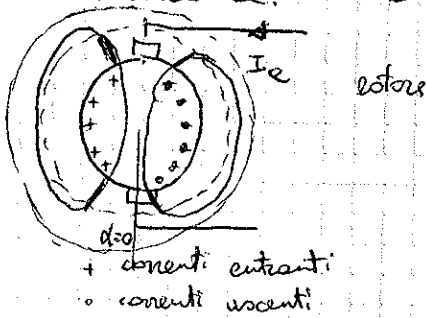 Ie
rotore
α=0
+ correnti entranti
∘ correnti uscenti